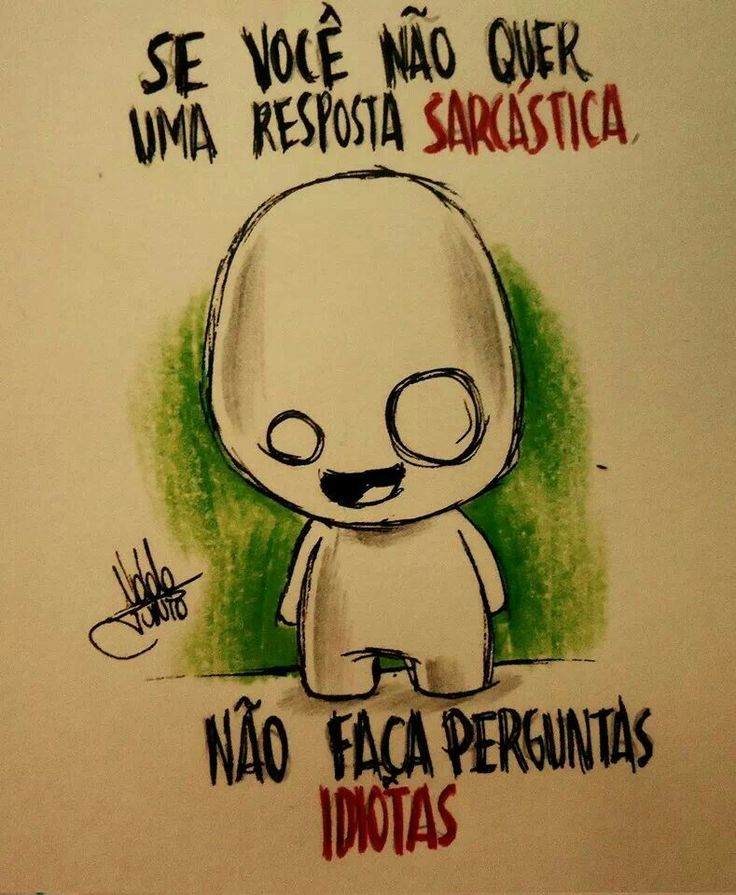 SE VOCÊ NÃO QUER
UMA RESPOSTA SARCÁSTICA
NÃO FAÇA PERGUNTAS
IDIOTAS